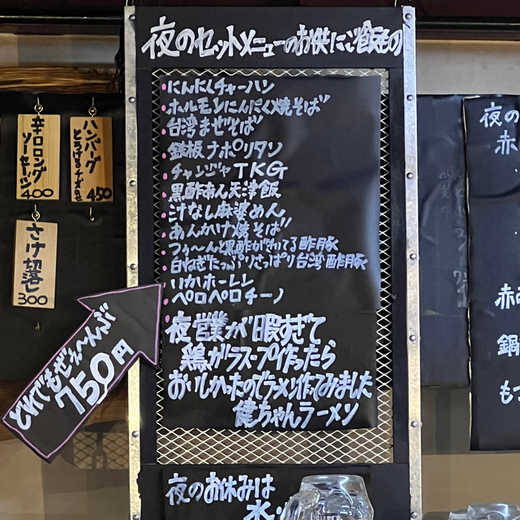 夜のセットメニューのお供にご飯もの
にんにくチャーハン
ホルモンにんにく焼そば
台湾まぜそば
鉄板ナポリタン
チャンジャTKG
黒酢あん天津飯
汁なし麻婆めん
あんかけ焼そば
つぅ〜んと黒酢がきいてる酢豚
白ねぎたっぷりさっぱり台湾酢豚
いかホーレン
ペロペロチーノ
夜営業が暇すぎて
鶏ガラスープ作ったら
おいしかったのでラーメン作てみました
健ちゃんラーメン
どれでもぜぇ〜んぶ
750円
夜のお休みは
水
辛口ロング
ソーセージ
400
ハンバーグ
とろけるチーズのせ
450
さけ切落
300
夜の
赤
赤
鍋
もつ